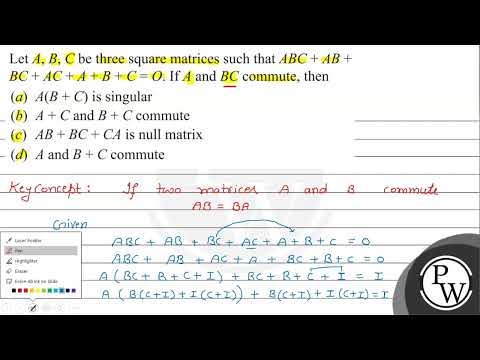 Let A, B, C be three square matrices such that ABC + AB +
BC + AC + A + B + C = O. If A and BC commute, then
(a) A(B + C) is singular
(b) A + C and B + C commute
(c) AB + BC + CA is null matrix
(d) A and B + C commute
Key Concept : If two matrices A and B commute
AB = BA
Given
ABC + AB + BC + AC + A + B + C = 0
ABC + AB + AC + A + BC + B + C = 0
A (BC + B + C + I) + BC + B + C + I = I
A (B(C+I) + I(C+I)) + B(C+I) + I(C+I) = I
Laser Pointer
Pen
Highlighter
Eraser
Erase All Ink on Slide
PW